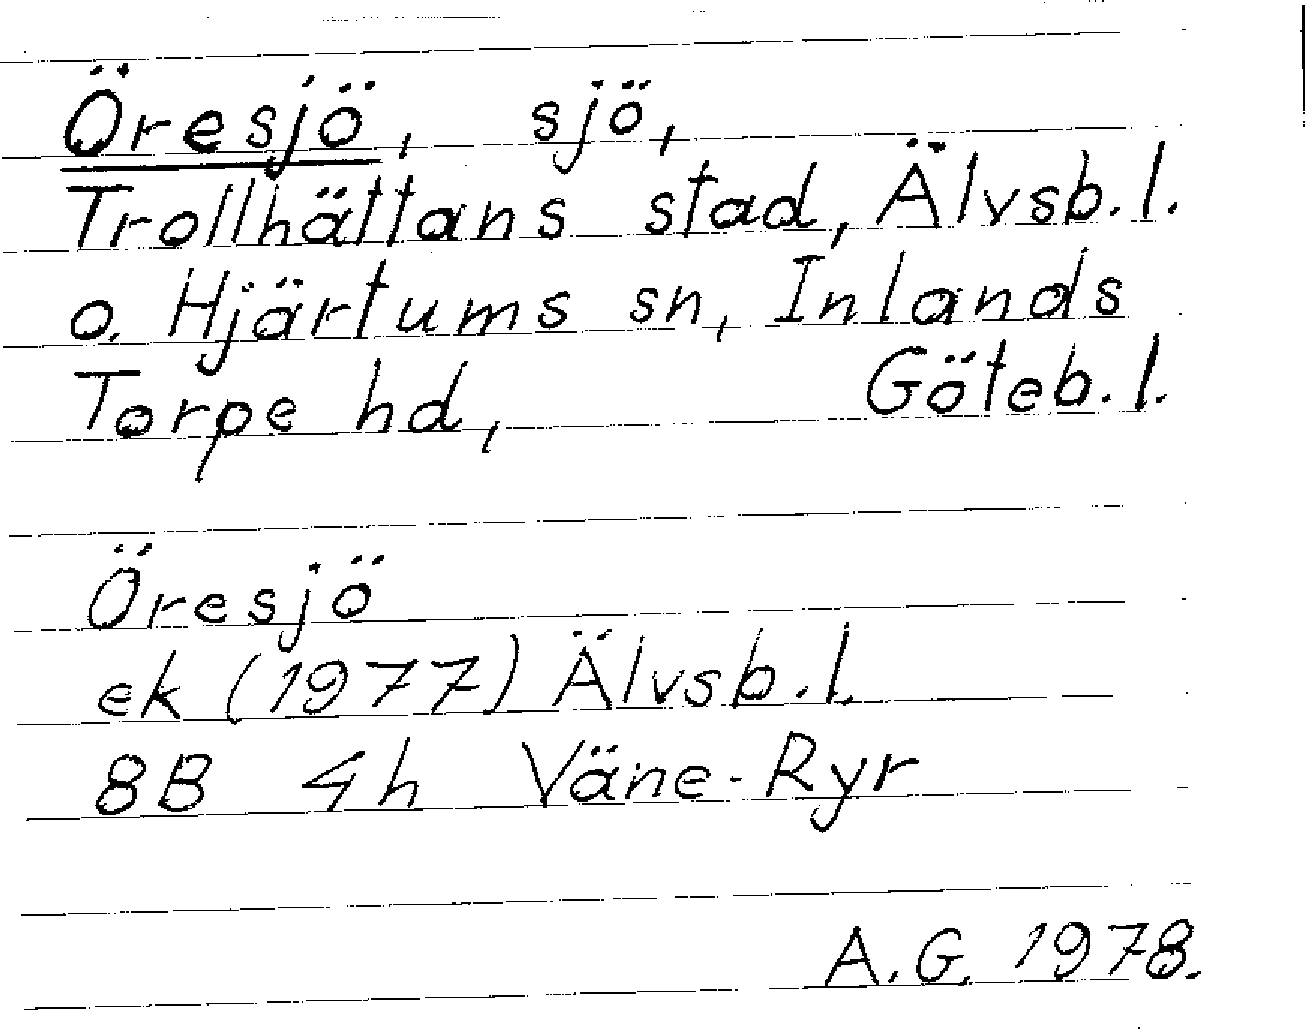 Öresjö, sjö,
Trollhättans stad, Älvsb. l.
o. Hjärtums sn, Inlands
Torpe hd, Göteb. l.
Öresjö
ek (1977) Älvsb. l.
8B 4h Väne-Ryr
A.G. 1978.